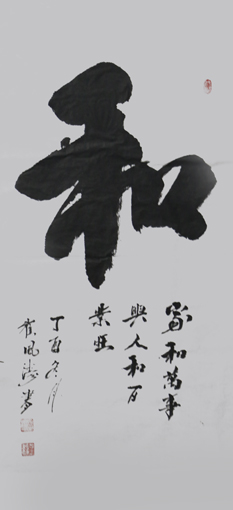 和
家和萬事
興人和百
業旺
丁酉冬月